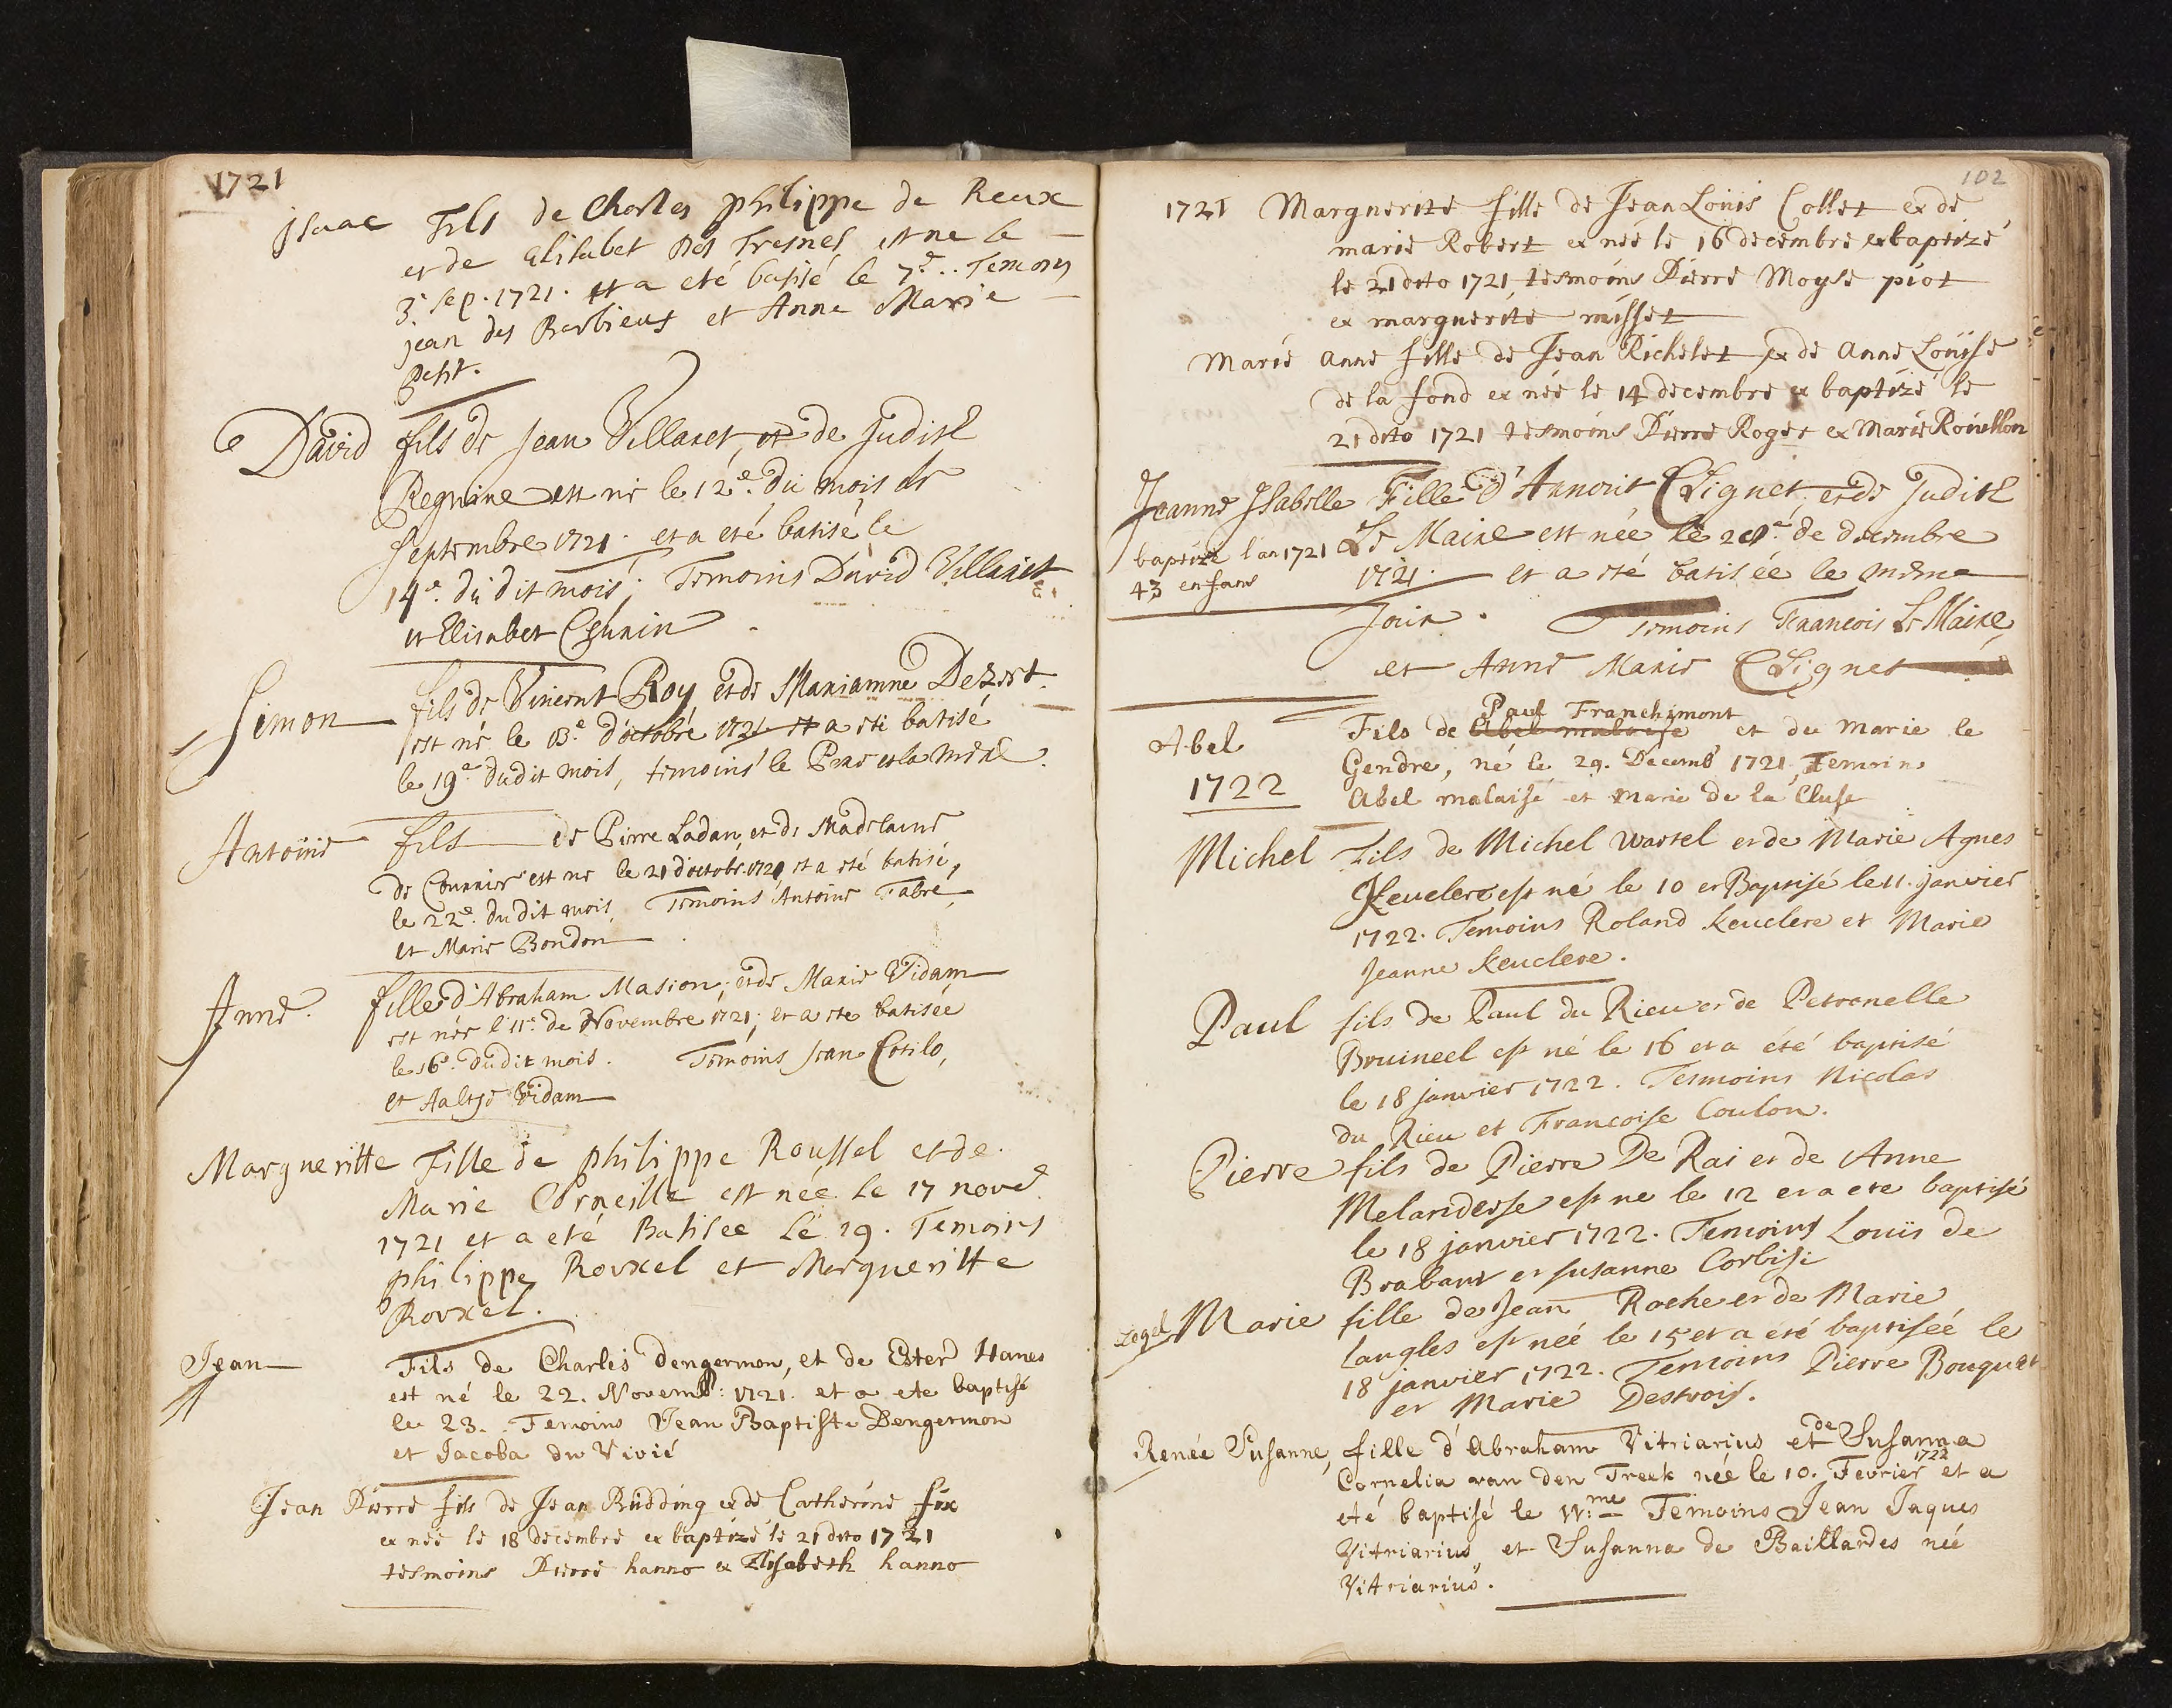 1721
Isaac Fils de Charles philippe de Reux
et de Elisabet Des Fresnes est ne le
3e Sep. 1721. et a eté batisé le 7e.. Temoins
jean des Barbieux et Anne Marie
Petit.
David fils de Jean Villaret, et de Judith
Regnine est né le 12e. du mois de
Septembre 1721. et a eté batisé le
14e. du dit mois; Temoins David Villaret
et Elisabet
Simon fils de Vincent Roy, et de Marianne Dezert
est né le 13e. d'octobre 1721 et a eté batisé
le 19e dudit mois, temoins le Pere et la mere.
Antoine fils de Pierre Ladan, et de Madelaine
de est ne le 21 d'octobr. 1721 et a eté batisé,
le 22e. du dit mois, Temoins Antoine Fabre,
et Marie Bondon
Anne. fille d'Abraham Masion, et de Marie Vidam
est née l'11e. de Novembre 1721; et a ete batisée
le 16e. du dit mois. Temoins Jean Cotilo,
et Aaltje Vidam
Margueritte Fille de philippe Roussel et de
Marie Corneille est née Le 17 nove
1721 et a eté Batisee Le 19. Temoins
philippe Rouxel et Margueritte
Rouxel.
Jean Fils de Charles Dengermon, et de Ester Hanes
est né le 22. Novemb: 1721. et a ete baptisé
le 23. Temoins Jean Baptiste Dengermon
et Jacoba du Vivié
Jean Pierre fils de Jean Rudding et de Catherine fix
et née le 18 decembre et baptizé le 21 dito 1721
tesmoins Pierre hanno et Elisabeth hanno
102
1721 Marguerite fille de Jean Louis Collet et de
marie Robert et née le 16 decembre et baptizé
le 21 dito 1721, tesmoins Pierre Moyse piot
et marguerite misset
Marie anne fille de Jean Richelet et de Anne Louise
de la fond et née le 14 decembre et baptizé le
21 dito 1721 tesmoins Pierre Roger et Marie Rouillon
Jeanne Isabelle Fille d'Arnout Clignet, et de Judith
baptizé l'an 1721 Le Maire est née le 20e. de decembre
43 enfans 1721. et a eté batisée le même
Jour. Temoins Francois Le Maire,
et Anne Marie Clignet
Paul Franchimont
Abel Fils de Abel malaise et de Marie le
1722 Gendre, né le 29. Decemb 1721, Temoins
Abel malaisé et Marie de la Cluse
Michel Fils de Michel Wartel et de Marie Agnes
Keuclere est né le 10 et Baptisé le 11. janvier
1722. Temoins Roland Keuclere et Marie
Jeanne Keuclere.
Paul fils de Paul du Rieu et de Petronelle
Bruineel est né le 16 et a été baptisé
le 18 janvier 1722. Tesmoins Nicolas
du Rieu et Francoise Coulon.
Pierre fils de Pierre De Rai et de Anne
Melandesse est ne le 12 et a ete baptisé
le 18 janvier 1722. Temoins Louis de
Brabant et susanne Corbisi
Legel Marie fille de Jean Roche et de Marie
Langles est née le 15 et a été baptisée le
18 janvier 1722. Temoins Pierre Bouquet
et Marie Destrois.
Renée Susanne, fille d'Abraham Vitriarius et de Susanna
Cornelia van den Treek née le 10. Fevrier 1722 et a
eté baptisé le 11:me Temoins Jean Jaques
Vitriarius, et Susanna de Baillardes née
Vitriarius.